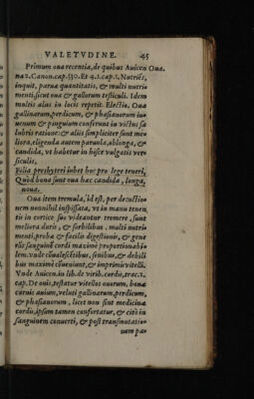 VALETVDINE. 45
Primum oua recentia, de quibus Auicen. Oua.
na 2. Canon. cap. 530. Et 4. 1. cap. 1. Nutriẽs,
inquit, parua quantitatis, & multi nutri
menti, sicut oua & gallorum testiculi. Idem
multis aliis in locis repetit. Electio. Oua
gallinarum, perdicum, & phasianorum iu
uenum & pinguium conferunt in victus sa
lubris ratione: & aliis simpliciter sunt me
liora, eligenda autem paruula, oblonga, &
candida, vt habetur in hisce vulgatis ver
siculis.
Filia presbyteri iubet hoc pro lege teneri,
Quòd bona sunt oua hæc candida, longa,
noua.
Oua item tremula, id est, per decoctio
nem nonnihil inspissata, vt in manu tenen
tis in cortice suo videantur tremere, sunt
meliora duris, & sorbilibus, multi nutri
menti, proba & facilis digestionis, & gene
rosi sanguinis cordi maxime proportionabi
lem. vnde conualescẽtibus, senibus, & debili
bus maximè cõueniunt, & in primis vitelli.
Vnde Auicen. in lib. de virib. cordis, trac. 1.
cap. De ouis, testatur vitellos ouorum, bonæ
carnis auium, veluti gallinarum, perdicum,
& phasianorum, licet non sint medicina
cordis, ipsum tamen confortatur, & citò in
sanguinem conuerti, & post transmutatio-
nem pa-